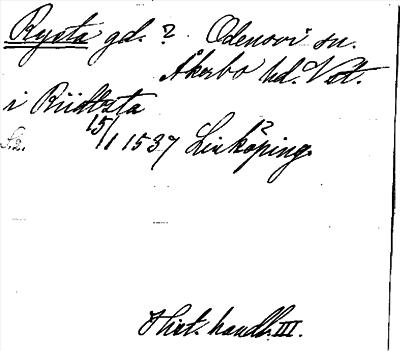 Rysta gd. ? Odensvi sn.
Åkerbo hd. Vstm.
i Riidhsta
15/1 1537 Linköping.
Hist. handl. III.